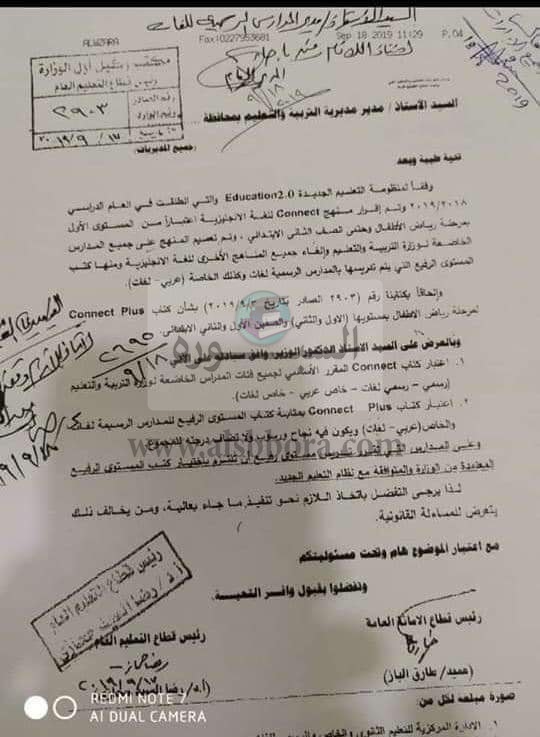 السيد الأستاذ / مدير المدارس الرسمية للغات
ALWZARA
Fax:0227953681
Sep 18 2019 11:29
P.04
مكتب وكيل أول الوزارة
رئيس قطاع التعليم العام
رقم الصادر
٢٩٠٣
٢٠١٩/٩/١٧
السيد الاستاذ / مدير مديرية التربية والتعليم بمحافظة
(جميع المديريات)
تحية طيبة وبعد
وفقاً لمنظومة التعليم الجديدة Education2.0 والتي انطلقت في العام الدراسي
٢٠١٩/٢٠١٨ وتم إقرار منهج Connect للغة الانجليزية اعتباراً من المستوى الأول
بمرحلة رياض الأطفال وحتى الصف الثاني الابتدائي ، وتم تعميم المنهج على جميع المدارس
الخاضعة لوزارة التربية والتعليم وإلغاء جميع المناهج الأخرى للغة الانجليزية ومنها كتب
المستوى الرفيع التي يتم تدريسها بالمدارس الرسمية لغات وكذلك الخاصة (عربي - لغات).
وإلحاقاً بكتابنا رقم (٢٩٠٣) الصادر بتاريخ (٢٠١٩/٩/٣) بشأن كتاب Connect Plus
لمرحلة رياض الاطفال بمستوييها (الاول والثاني) والصفين الأول والثاني الابتدائي.
وبالعرض على السيد الاستاذ الدكتور الوزير، وافق سيادته على الآتي
١. اعتبار كتاب Connect المقرر الأساسي لجميع فئات المدارس الخاضعة لوزارة التربية والتعليم
(رسمي - رسمي لغات - خاص عربي - خاص لغات).
٢. اعتبار كتاب Connect Plus بمثابة كتاب المستوى الرفيع للمدارس الرسمية لغات
والخاص (عربي - لغات) ويكون فيه نجاح ورسوب ولا تضاف درجته للمجموع.
وعلى المدارس التي تقرر تدريس مستوى رفيع أن تلتزم باختيار كتب المستوى الرفيع
المعتمدة من الوزارة والمتوافقة مع نظام التعليم الجديد.
لذا يرجى التفضل باتخاذ اللازم نحو تنفيذ ما جاء بعاليه، ومن يخالف ذلك
يتعرض للمساءلة القانونية.
مع اعتبار الموضوع هام وتحت مسئوليتكم
وتفضلوا بقبول وافر التحية،
رئيس قطاع الامانة العامة
(عميد/ طارق الباز)
رئيس قطاع التعليم العام
رئيس قطاع التعليم العام
٢٠١٩/٩/١٧
صورة مبلغة لكل من:
١. الادارة المركزية للتعليم الثانوي والخاص
٢٦٩٥
٩/١٨
السبورة
www.alsbbora.com
REDMI NOTE 7
AI DUAL CAMERA